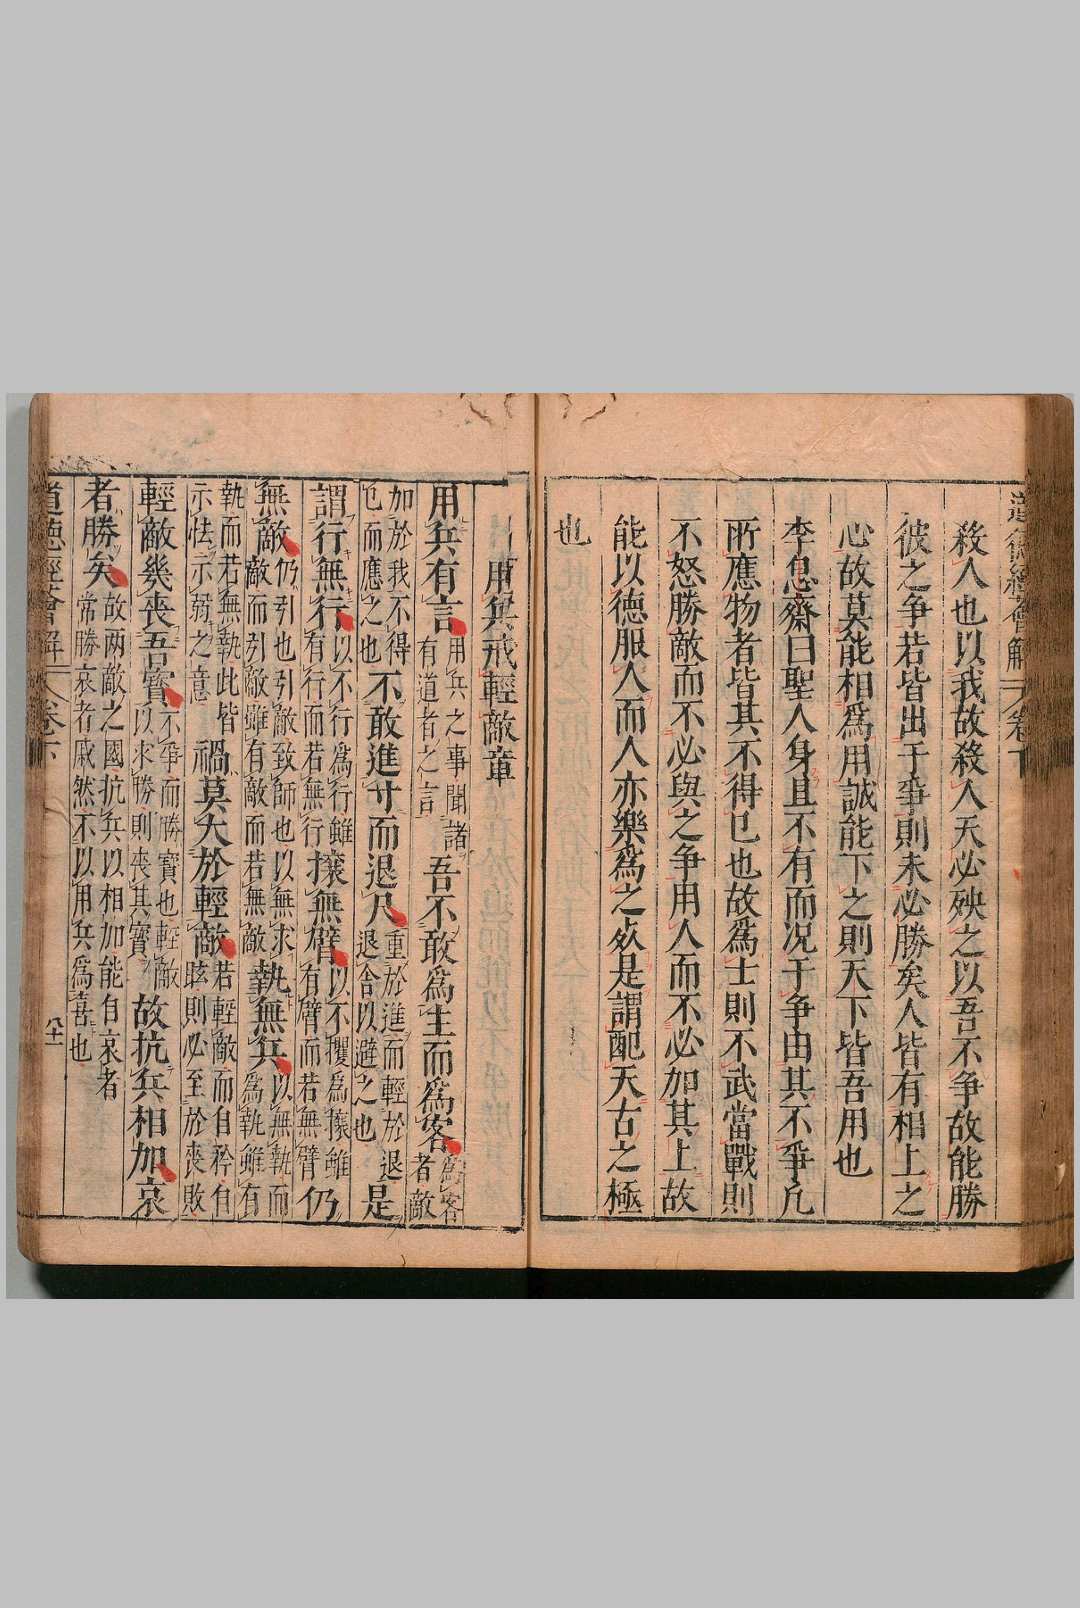 道德經會解 卷下
殺人也以我故殺人天必殃之以吾不爭故能勝
彼之爭若皆出于爭則未必勝矣人皆有相上之
心故莫能相爲用誠能下之則天下皆吾用也
李息齋曰聖人身且不有而况于爭由其不爭凡
所應物者皆其不得已也故爲士則不武當戰則
不怒勝敵而不必與之爭用人而不必加其上故
能以德服人而人亦樂爲之效是謂配天古之極
也
用兵戒輕敵章
用兵有言用兵之事聞諸有道者之言吾不敢爲主而爲客爲客者敵
加於我不得已而應之也不敢進寸而退尺重於進而輕於退退舍以避之也是
謂行無行以不行爲行雖有行而若無行攘無臂以不攘爲攘雖有臂而若無臂仍
無敵仍引也引敵致師也以無求敵而引敵雖有敵而若無敵執無兵以無執而爲執雖有
執而若無執此皆示怯示弱之意禍莫大於輕敵若輕敵而自矜自眩則必至於喪敗
輕敵幾喪吾寶不爭而勝寶也輕敵以求勝則喪其寶故抗兵相加哀
者勝矣故两敵之國抗兵以相加能自哀者常勝哀者戚然不以用兵爲喜也
道德經會解 卷下 八十一